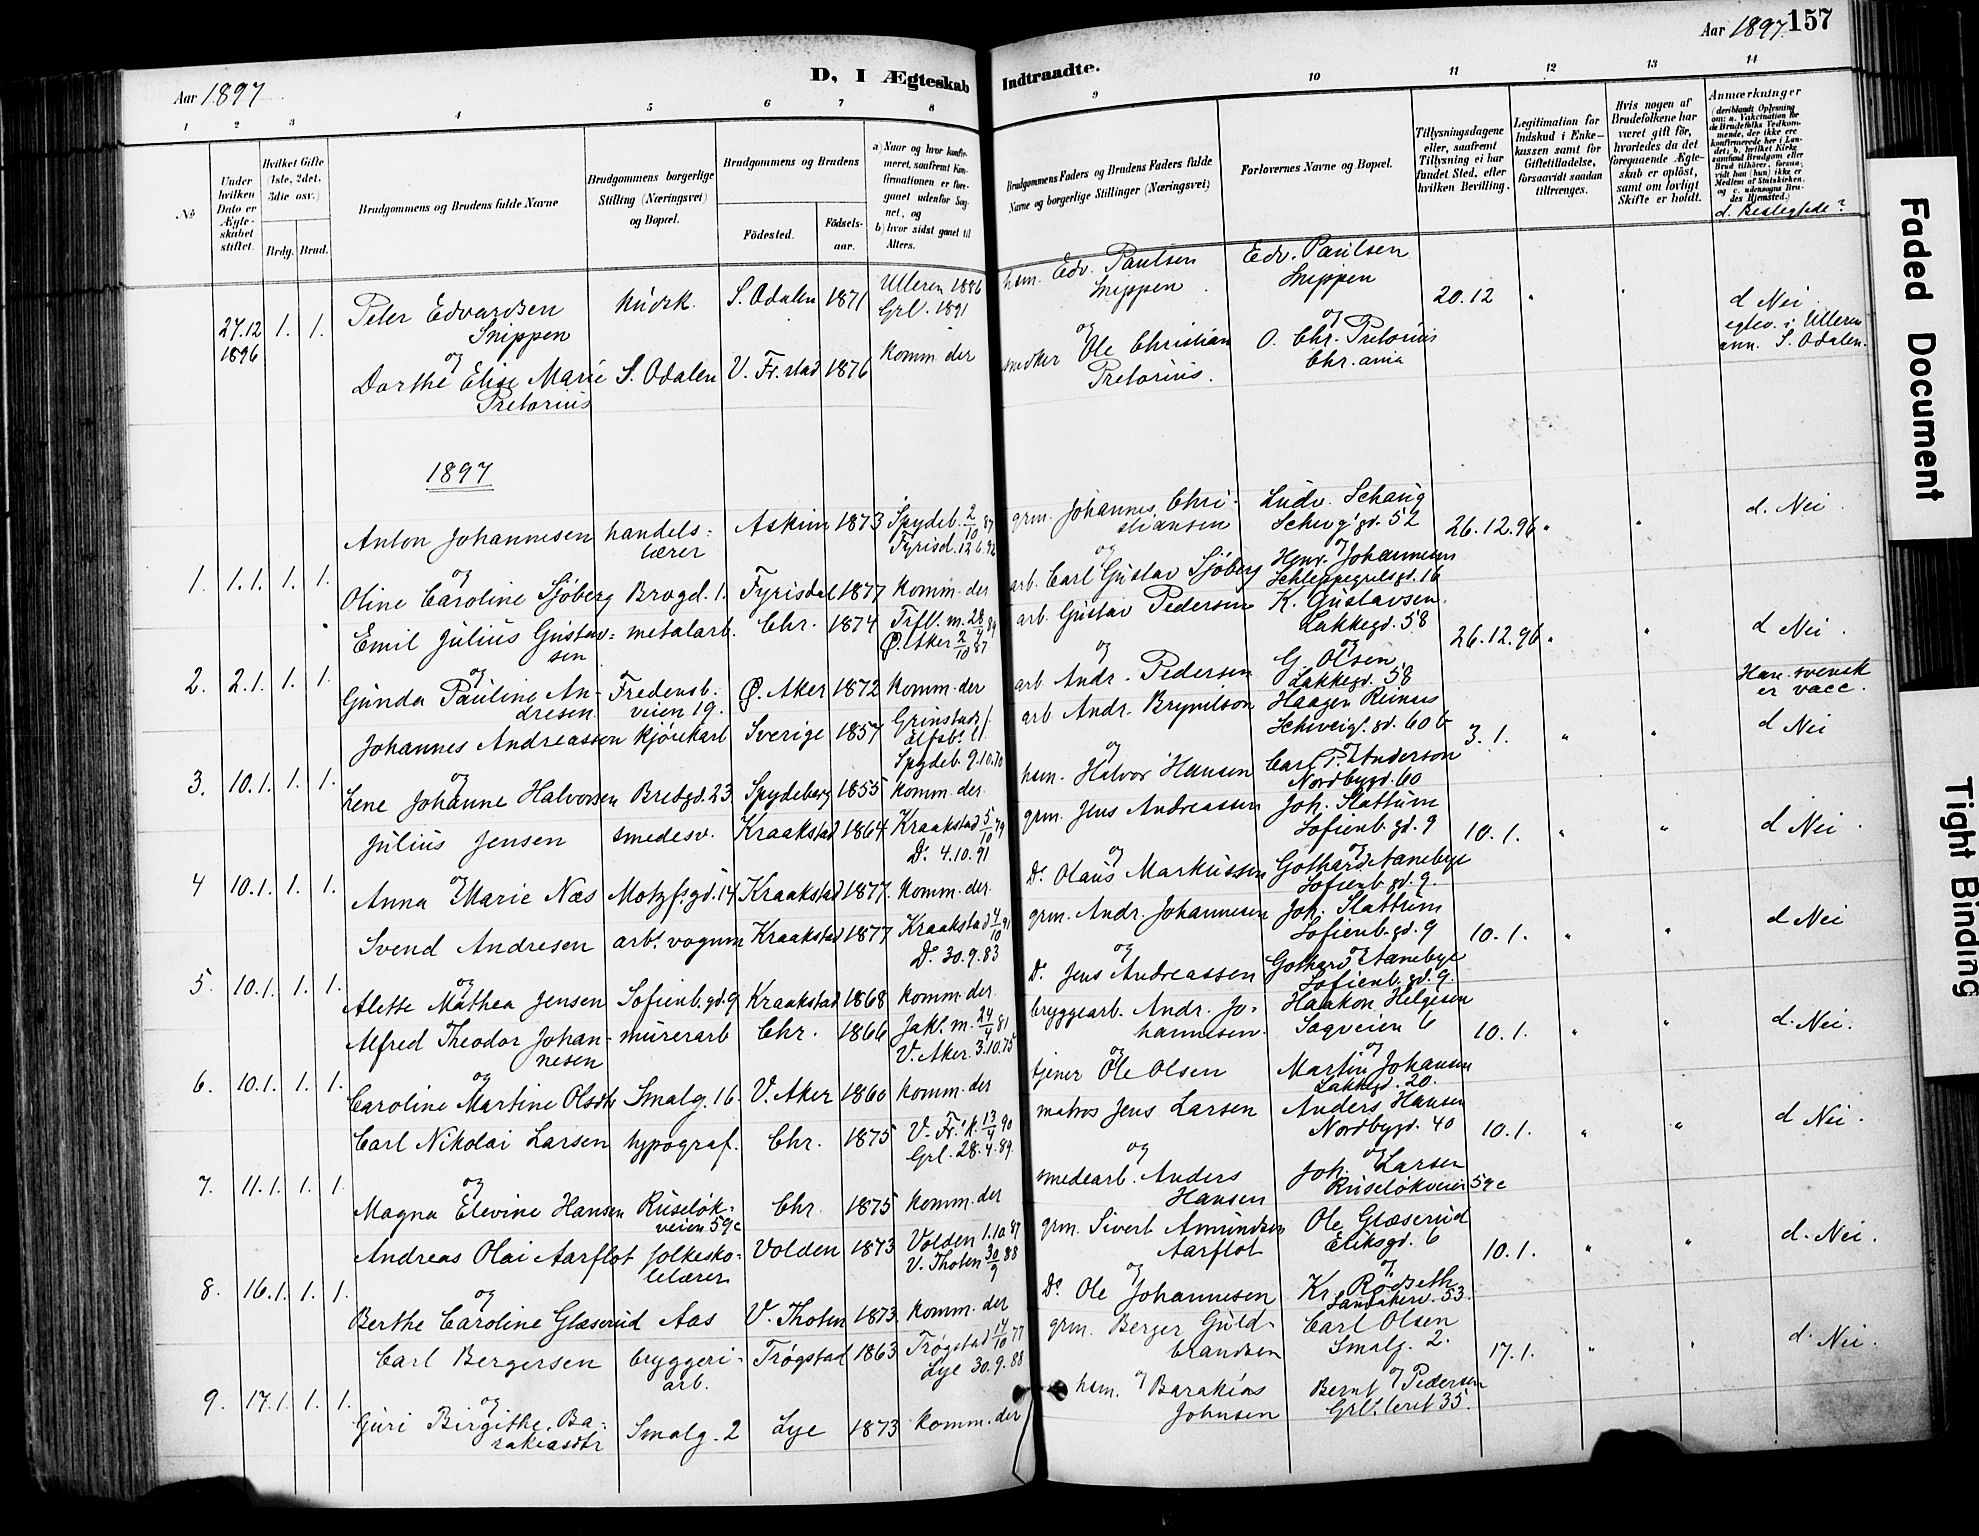 Aar 1897
D, I Ægteskab Indtraadte.
Aar 1897. 157
1 2 3 4 5 6 7 8 9 10 11 12 13 14
No
Under hvilken Dato er Ægteskabet stiftet.
Hvilket Gifte (1ste, 2det, 3die osv.)
Brdg. Brud.
Brudgommens og Brudens fulde Navne
Brudgommens borgerlige Stilling (Næringsvei) og Bopæl.
Brudgommens og Brudens
Födested.
Födsels-aar.
a) Naar og hvor konfirmeret, saafremt Konfirmationen er foregaaet udenfor Sognet, og
b) hvor sidst gaaet til Alters.
Brudgommens Faders og Brudens Faders fulde Navne og borgerlige Stillinger (Næringsvei)
Forlovernes Navne og Bopæl.
Tillysningsdagene eller, saafremt Tillysning ei har fundet Sted, efter hvilken Bevilling.
Legitimation for Indskud i Enkekassen samt for Giftetilladelse, forsaavidt saadan tiltrænges.
Hvis nogen af Brudefolkene har været gift för, hvorledes da det foregaaende Ægteskab er oplöst, samt om lovligt Skifte er holdt.
Anmærkninger
d. Beslegtede?
27.12 1896 1. 1. Peter Edvardsen Snippen S. Odalen 1871 Ulleren 1886 Grl. 1891 Edv. Paulsen Snippen Edv. Paulsen Snippen 20.12 " " d Nei.
og
Dorthe Elise Marie Pretorius S. Odalen V. Fr.stad 1876 komm. der Ole Christian Pretorius. O. Chr. Pretorius Chr.ania egtev. i Ulleren ann. S. Odalen.
1897
1. 1.1. 1. 1. Anton Johannesen handelslærer Askim 1873 Spydeb. 2/10 87 Fyrisd. 12.6.92 grm. Johannes Christiansen Ludv. Schaug 52 26.12.96 " " d. Nei
og
Oline Caroline Sjöberg Brogd. 1. Fyrisdal 1877 komm. der arb. Carl Gustav Sjöberg Henr. Johannesen Schleppegrelsgd. 16
2. 2.1. 1. 1. Emil Julius Gustavsen metalarb. Chr. 1874 Ø. Aker 2/10 87 arb. Gustav Pedersen K. Gustavsen Lakkegd. 58 26.12.96 " " d Nei.
og
Gunda Pauline Andresen Fredensb.veien 19. Ø. Aker 1872 komm. der arb. Andr. Pedersen G. Olsen Lakkegd. 58
3. 10.1. 1. 1. Johannes Andreassen kjörekarl Sverige 1857 Spydeb. 9.10.70 arb. Andr. Brynilson Haagen Reinus 60 b 3.1. " " Han svensk er vacc. d Nei
og
Lene Johanne Halvorsen Bredgd. 23 Spydeberg 1855 komm. der hsm. Halvor Hansen Carl P. Anderson Nordbygd. 60
4 10.1. 1. 1. Julius Jensen smedesv. Kraakstad 1864 Kraakstad 5/10 79 Do. 4.10.91 grm. Jens Andreassen Joh. Slattum Sofienb.gd. 9 10.1. " " d Nei.
og
Anna Marie Næs Motzf.gd. 14 Kraakstad 1877. komm. der. Do. Olaus Markussen Gothard Aanebye Sofienb.gd. 9.
5. 10.1. 1. 1. Svend Andresen arb. vognm Kraakstad 1877 Kraakstad 4/10 91 Do. 30.9.83 grm. Andr. Johannesen Joh. Slattum Sofienb.gd. 9 10.1. " " d Nei
og
Alette Mathea Jensen Sofienb.gd. 9 Kraakstad 1868 komm. der. Do. Jens Andreassen Gothard Aanebye Sofienb.gd. 9.
6. 10.1. 1. 1. Alfred Theodor Johannesen murerarb Chr. 1866 Jak. m. 24/4 81 V. Aker 3.10.75 bryggearb. Andr. Johannesen. Haakon Helgesen Sagveien 6 10.1. " " d. Nei.
og
Caroline Martine Olsdtr Smalg. 16. V. Aker 1860 komm. der tjener Ole Olsen Martin Johansen Lakkegd. 20.
7. 11.1. 1. 1. Carl Nikolai Larsen typograf. Chr. 1875 V. Fr.k. 13/4 90 Grl. 28.4.89 matros Jens Larsen Anders Hansen Nordbygd. 40 10.1. " " d Nei.
og
Magna Elevine Hansen Ruselökveien 59c Chr. 1875 komm. der smedearb. Anders Hansen Joh. Larsen Ruselökveien 59c
8. 16.1. 1. 1. Andreas Olai Aarflot folkeskolelærer Volden 1873 Volden 1.10.87 V. Thoten 30/9 88 grm. Sivert Amundsen Aarflot Ole Glæserud Eriksgd. 6 10.1. " " d. Nei.
og
Berthe Caroline Glæserud Aas V. Thoten 1873 komm. der Do. Ole Johannesen Kr. Rödseth Sandakerv. 53.
9. 17.1. 1. 1. Carl Bergersen bryggeriarb. Trøgstad 1863 Trøgstad 14/10 77 Lye 30.9.88 grm. Berger Guldbrandsen Carl Olsen Smalg. 2. 17.1. " " d. Nei.
og
Guri Birgithe Barakiasdtr Smalg. 2 Lye 1873 komm. der hsm. Barakias Johnsen Bernt Pedersen Grl. 35.
Faded Document
Tight Binding